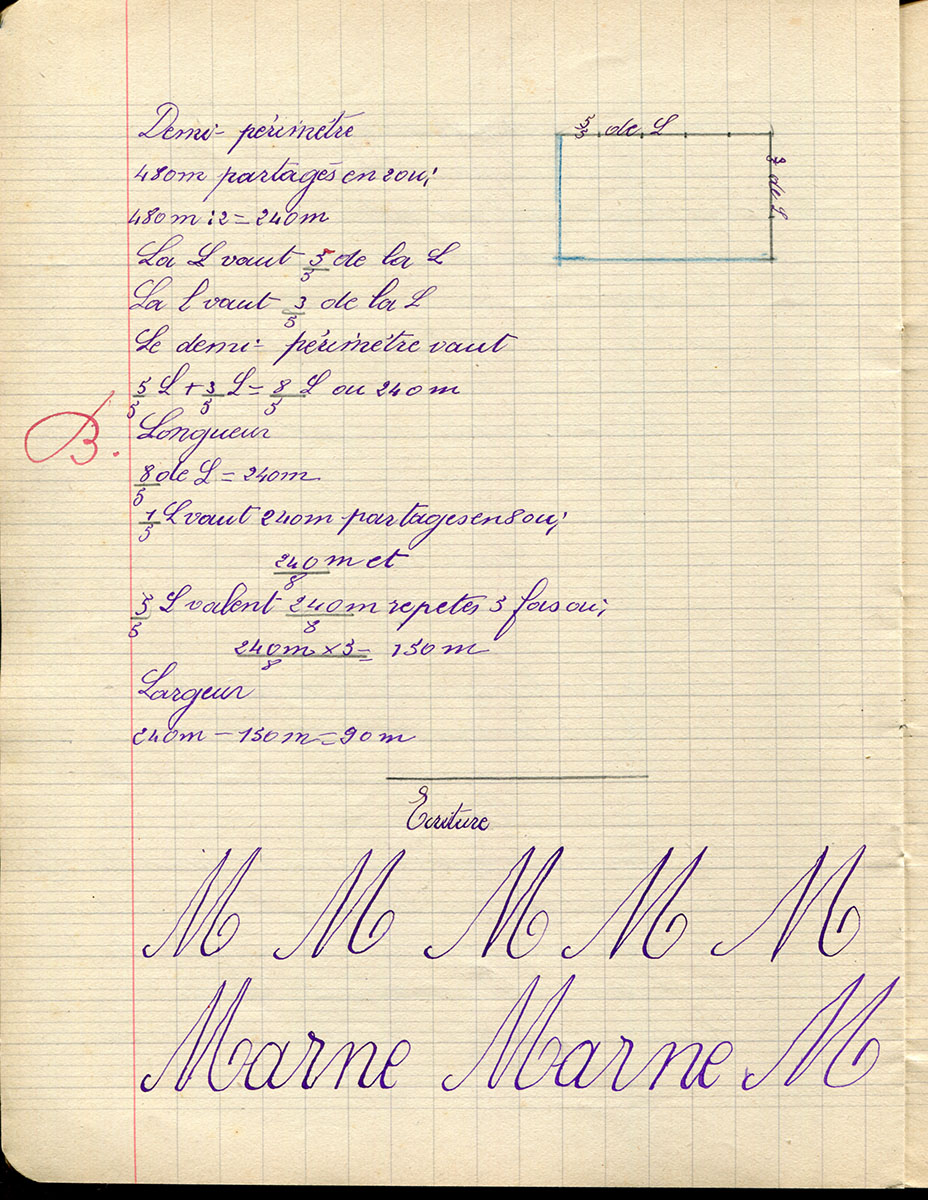 Demi-périmètre
5/5 de L
3/5 de L
480m partagés en 2 ou;
480m : 2 = 240m
La L vaut 5/5 de la L
La l vaut 3/5 de la L
Le demi-périmètre vaut
5/5 L + 3/5 L = 8/5 L ou 240m
B.
Longueur
8/5 de L = 240m
1/5 L vaut 240m partages en 8 ou;
240/8 m et
5/5 L valent 240m/8 repetes 5 fois ou;
240m × 5/8 = 150m
Largeur
240m - 150m = 90m
Ecriture
M M M M M
Marne Marne M